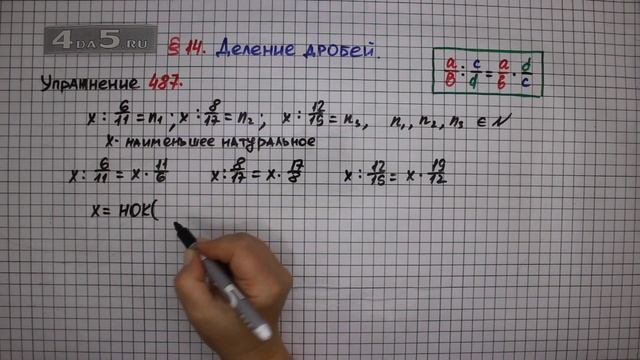 4DA5.RU
§ 14. Деление дробей.
a/b : c/d = a/b · d/c
Упражнение 487.
x : 6/11 = n₁; x : 8/17 = n₂; x : 12/15 = n₃, n₁, n₂, n₃ ∈ N
x - наименьшее натуральное
x : 6/11 = x · 11/6 x : 8/17 = x · 17/8 x : 12/15 = x · 19/12
x = НОК(